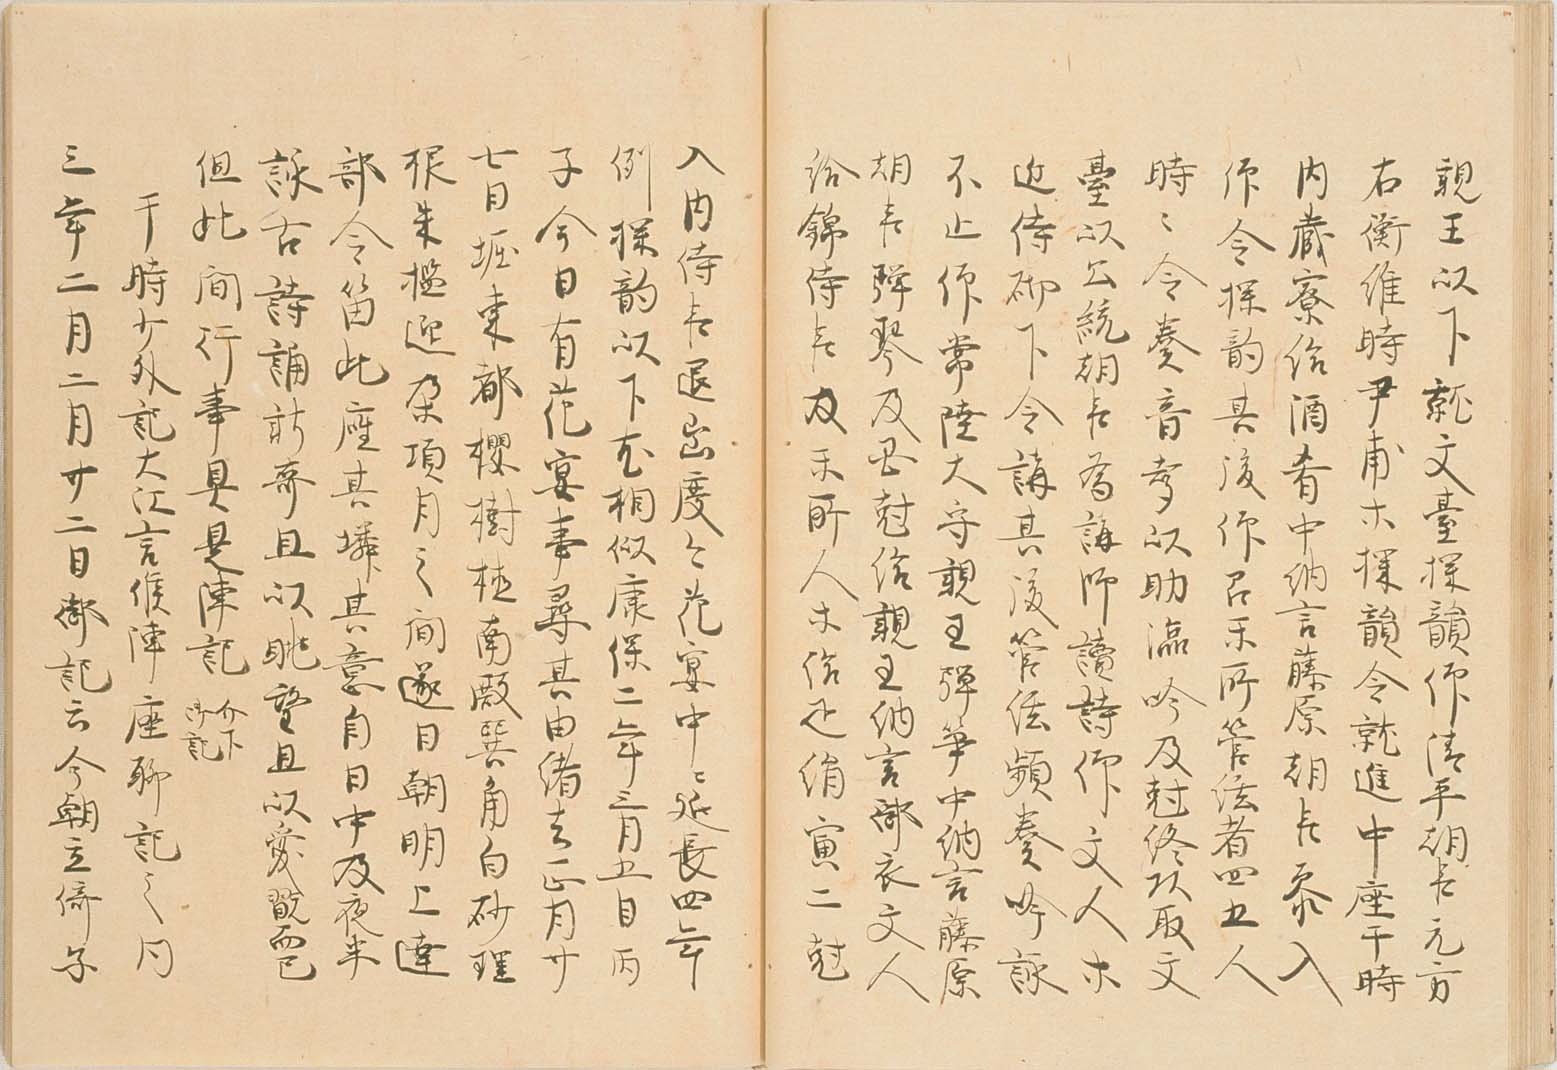 親王以下就文臺探韻仰清平朝臣元方
右衡維時尹甫ホ探韻令就進中座干時
内蔵寮給酒肴中納言藤原朝臣参入
仰令探韵其後仰召禾所管絃者四五人
時〻令奏音声以助瀛吟及尅終功取文
臺以公統朝臣為講師讀詩仰文人ホ
近侍砌下令講其後管絃頻奏吟詠
不止仰常陸大守親王弾箏中納言藤原
朝臣弾琴及丑尅給親王納言御衣文人
給錦侍臣及禾所人ホ給疋絹寅二尅
入内侍臣退出度〻花宴中〻延長四年
例探韵以下尤相似康保二年三月五日丙
子今日有花宴事尋其由緒去正月廿
七日堀東都櫻樹植南殿巽角白砂埋
根朱檻迎朶項月之間遂日朝明上達
部令笛此座其㷠其意自日中及夜半
詠古詩誦新哥且以眺望且以愛翫而已
但此間行事具見陣記 介下御記
干時少外記大江言候陣座聊記之内
三年二月二月廿二日御記云今朝立倚子